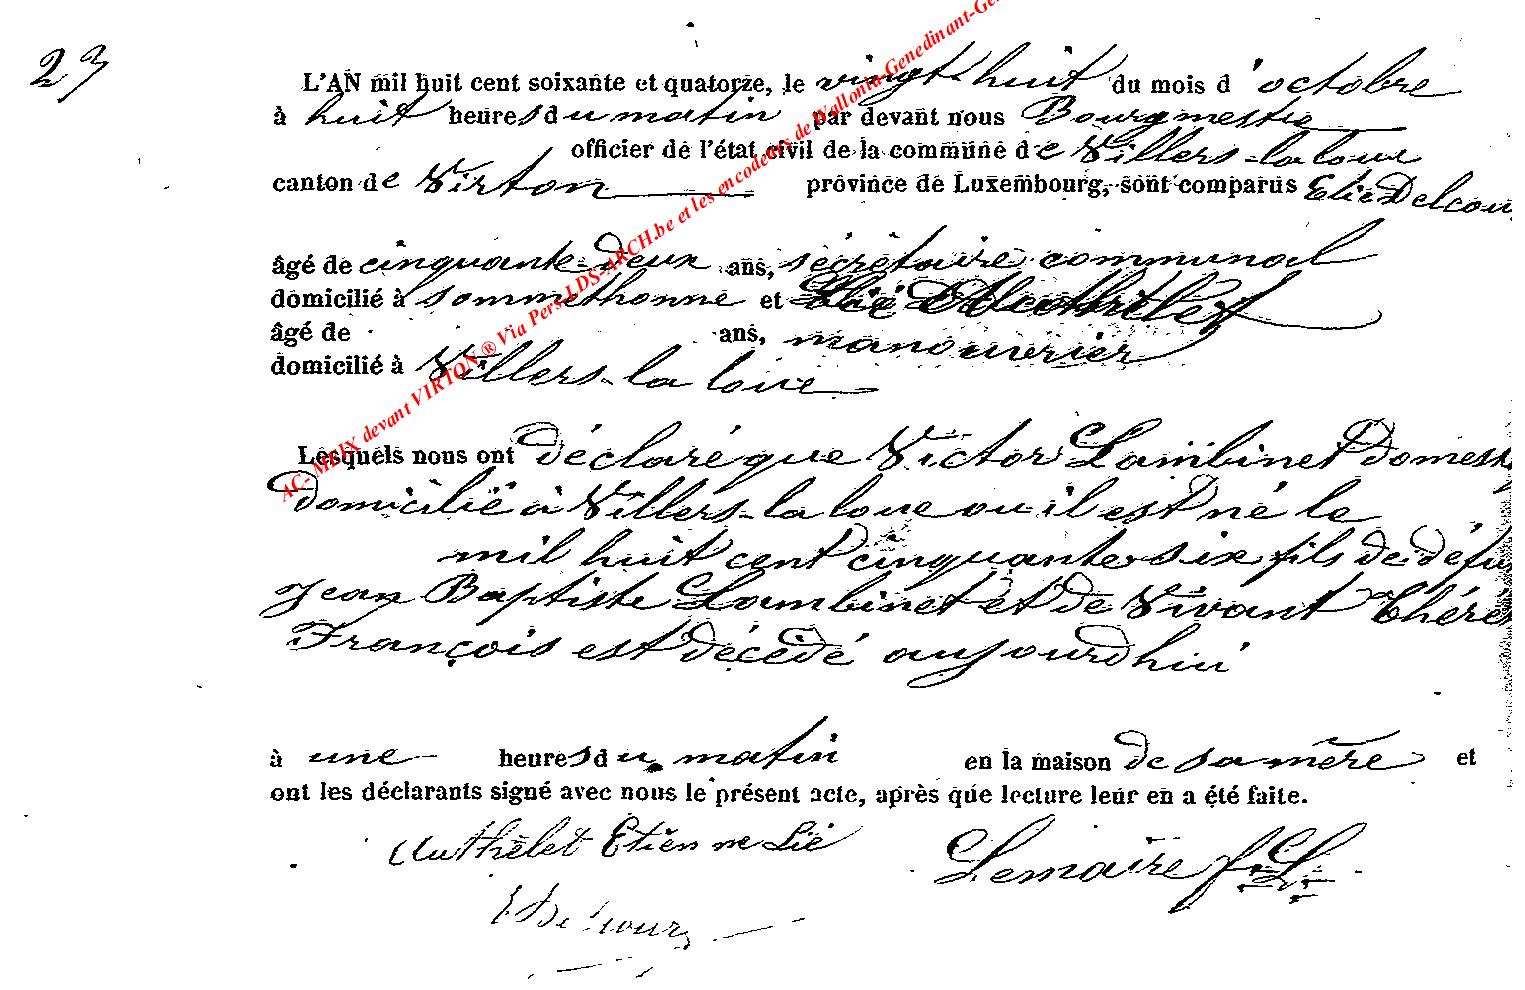 23
L'AN mil huit cent soixante et quatorze, le vingt-huit du mois d'octobre
à huit heures du matin par devant nous Bourgmestre
officier de l'état civil de la commune de Villers-la-loue
canton de Virton province de Luxembourg, sont comparus Elie Delcour
âgé de cinquante-deux ans, sécrétaire communal
domicilié à Sommethonne et
âgé de ans, manouvrier
domicilié à Villers-la loue
Lesquels nous ont déclaré que Victor Lambinet Domest
domicilié à Villers-la loue ou il est né le
mil huit cent cinquante six fils de défu
Jean Baptiste Lambinet et de Vivant Thérè
François est décédé aujourdhui
à une heures du matin en la maison de sa mère et
ont les déclarants signé avec nous le présent acte, après que lecture leur en a été faite.
Authelet Etienne Lié
Lemaire f.
E Delcour
AC- MEIX devant VIRTON ® Via Pers.LDS-ARCH.be et les encodeurs de Wallonia-Genedinant-Gen